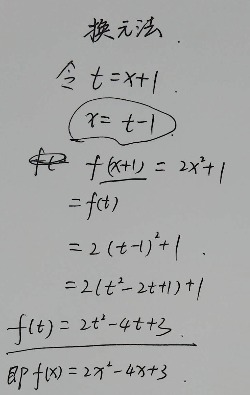 换元法.
令 t=x+1
x= t-1
f(x+1) = 2x²+1
=f(t)
=2(t-1)²+1.
=2(t²-2t+1)+1
f(t)=2t²-4t+3.
即f(x)=2x²-4x+3.